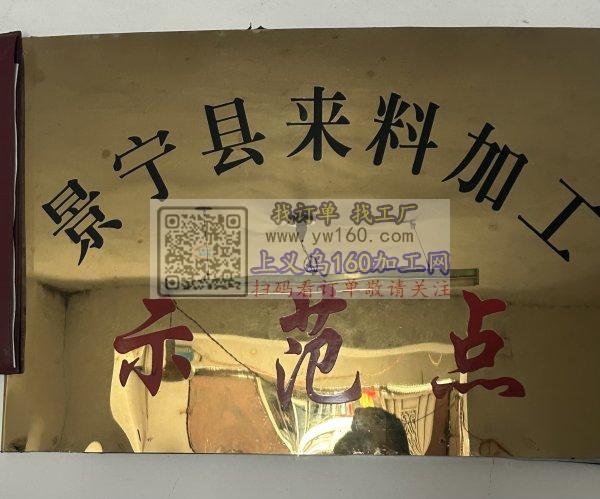 景宁县来料加工
找订单 找工厂
www.yw160.com
上义乌160加工网
扫码看订单敬请关注
示范点